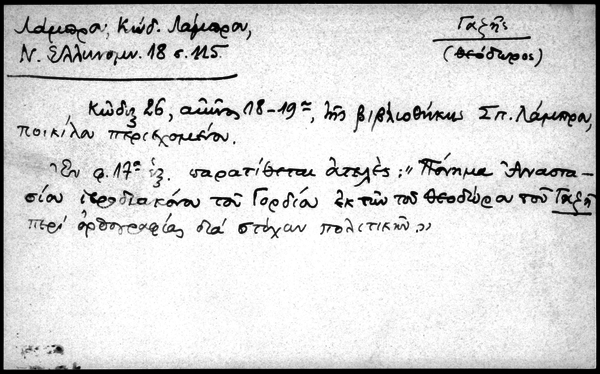 Λάμπρου, Κώδ. Λάμπρου,
Ν. Ελληνομν. 18 σ. 115.
Γαζῆς
(Θεόδωρος)
Κῶδιξ 26, αἰῶνος 18-19ου, τῆς βιβλιοθήκης Σπ. Λάμπρου,
ποικίλου περιεχομένου.
Ἐν φ. 17α ἑξ. παρατίθεται ἀτελές: "Πόνημα Ἀναστα-
σίου ἱεροδιακόνου τοῦ Γορδίου ἐκ τῶν τοῦ Θεοδώρου τοῦ Γαζῆ
περὶ ὀρθογραφίας διὰ στίχων πολιτικῶν"